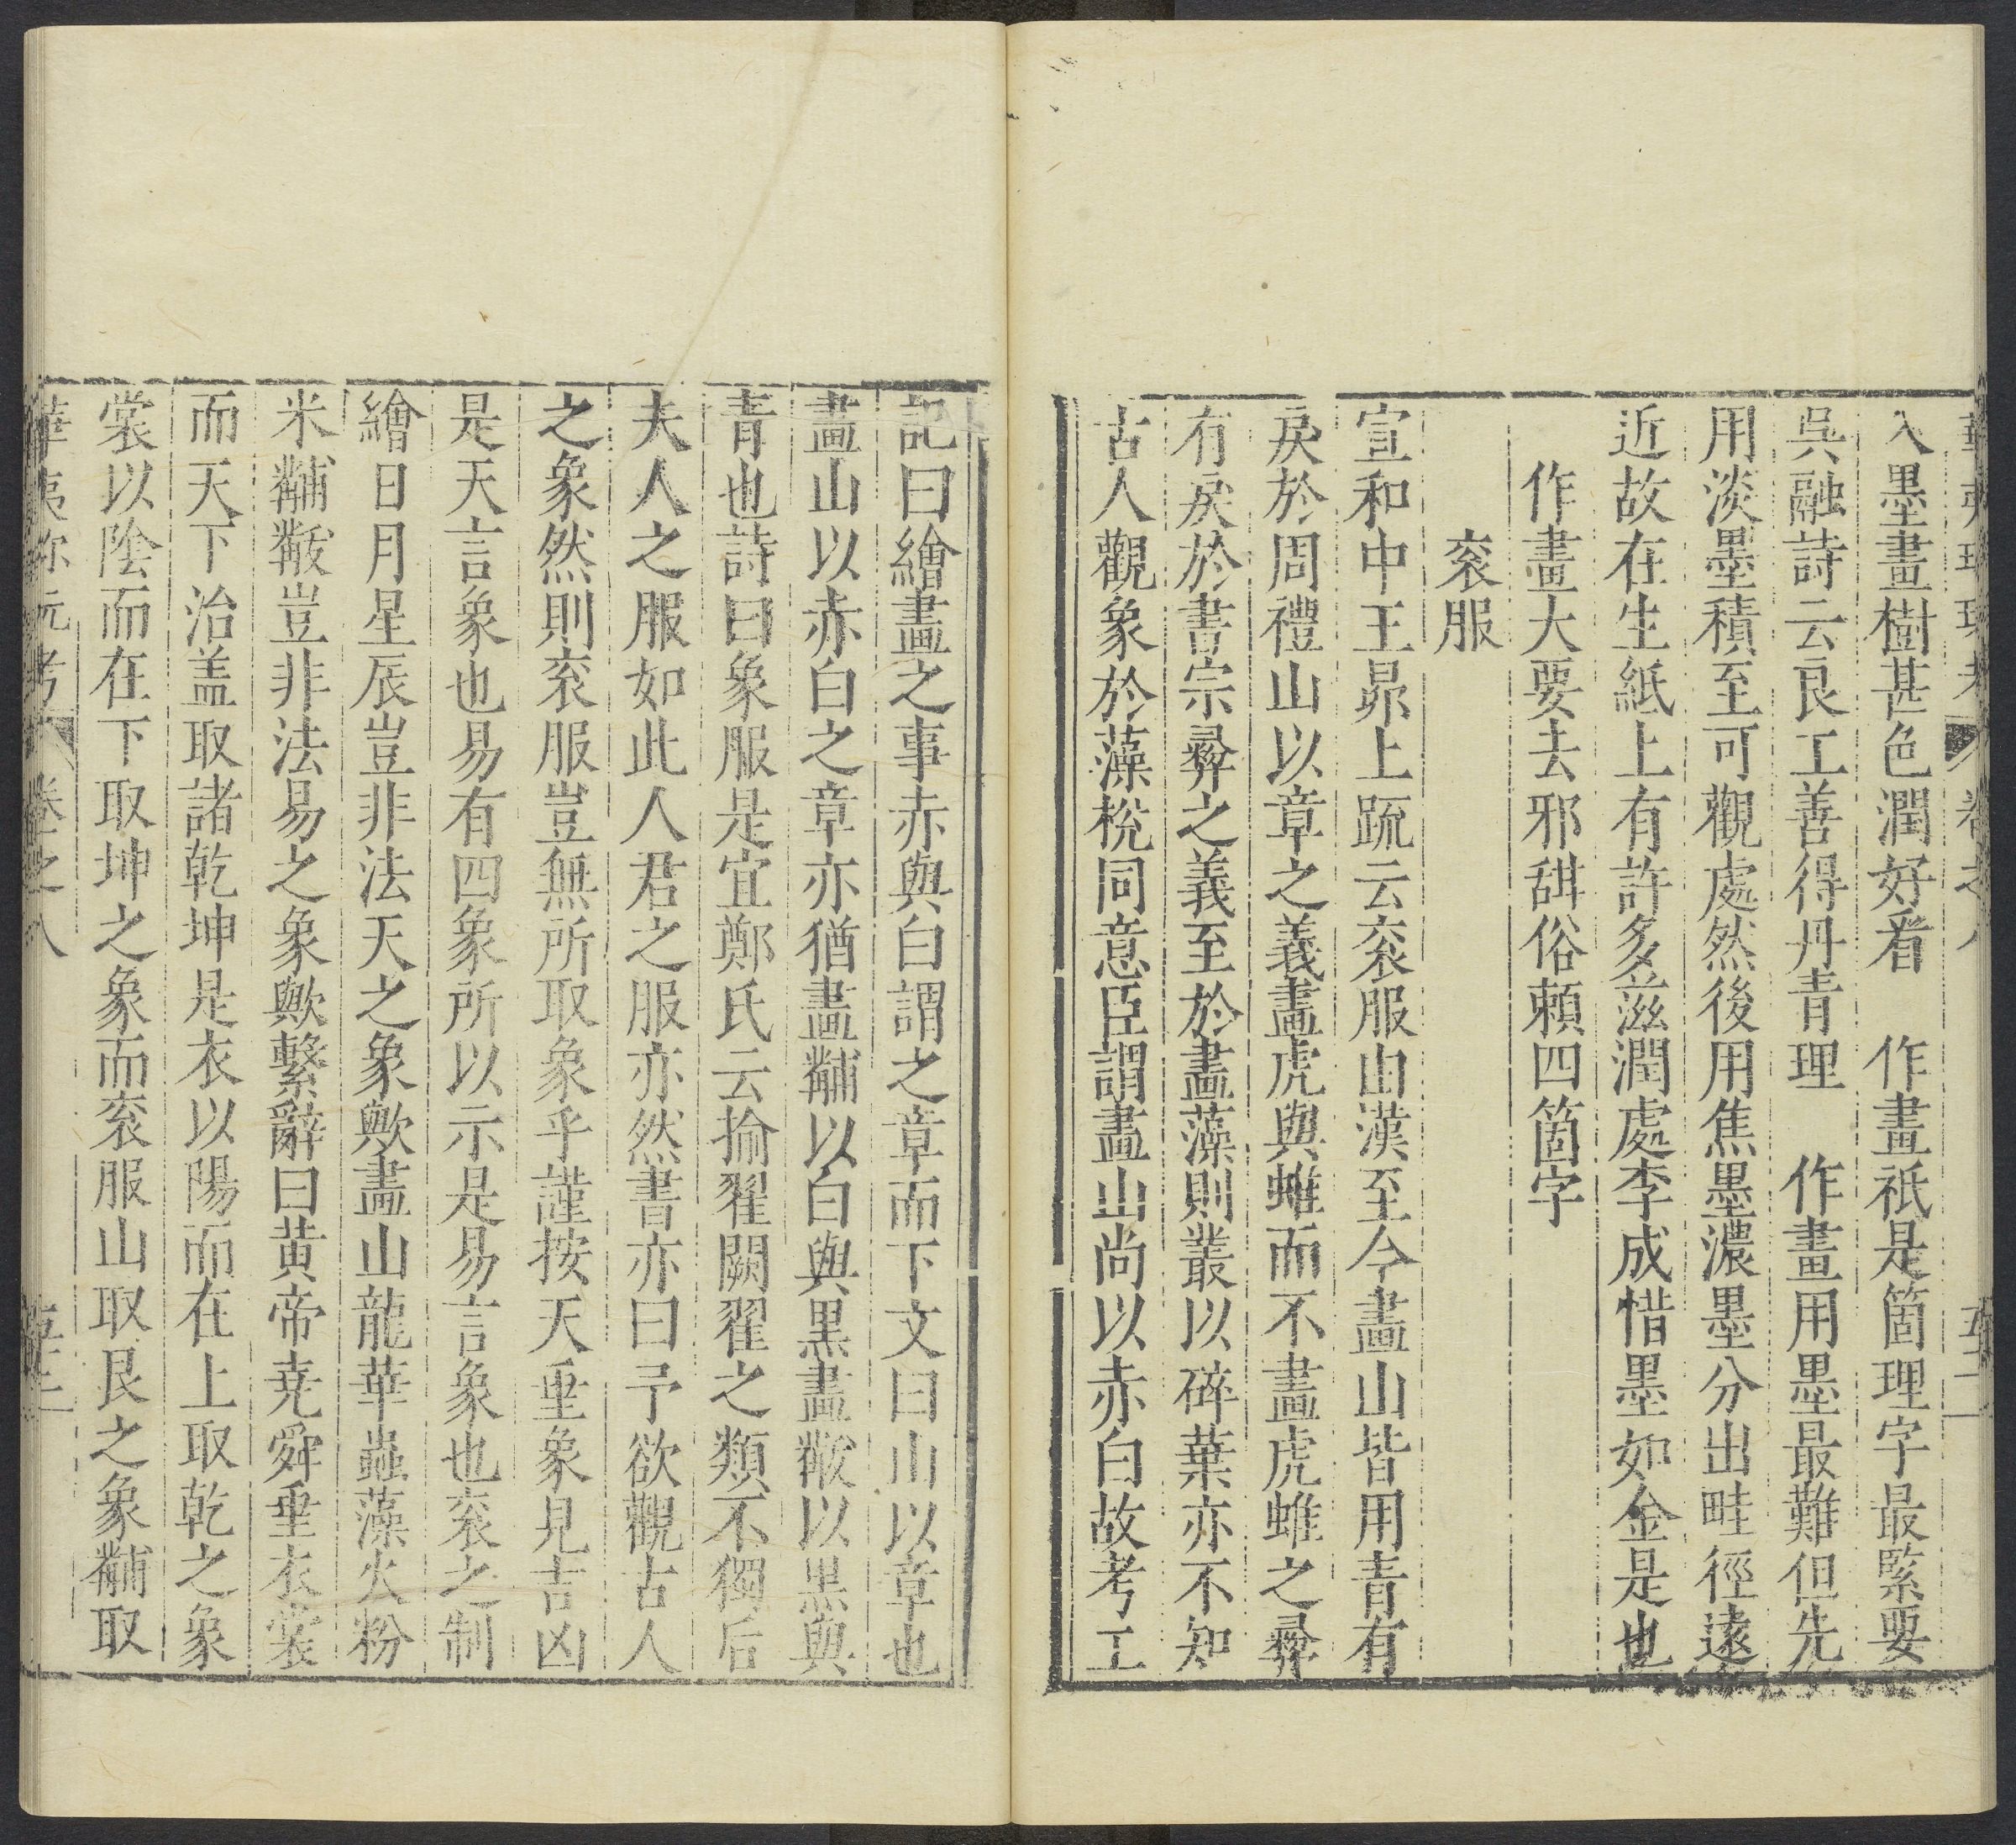 入墨畫樹甚色潤好看　作畫祇是箇理字最緊要
吳融詩云良工善得丹青理　作畫用墨最難但先
用淡墨積至可觀處然後用焦墨濃墨分出畦徑遠
近故在生紙上有許多滋潤處李成惜墨如金是也
作畫大要去邪甜俗賴四箇字
衮服
宣和中王昴上疏云衮服由漢至今畫山皆用青有
戾於周禮山以章之義畫虎與蜼而不畫虎蜼之彛
有戾於書宗彛之義至於畫藻則叢以碎葉亦不知
古人觀象於藻梲同意臣謂畫山尚以赤白故考工
記曰繪畫之事赤與白謂之章而下文曰山以章也
畫山以赤白之章亦猶畫黼以白與黒畫黻以黒與
青也詩曰象服是宜鄭氏云揄翟闕翟之類不獨后
夫人之服如此人君之服亦然書亦曰予欲觀古人
之象然則衮服豈無所取象乎謹按天垂象見吉凶
是天言象也易有四象所以示是易言象也衮之制
繪日月星辰豈非法天之象歟畫山龍華蟲藻火粉
米黼黻豈非法易之象歟繫辭曰黄帝堯舜垂衣裳
而天下治盖取諸乾坤是衣以陽而在上取乾之象
裳以陰而在下取坤之象而衮服山取艮之象黼取
卷之八